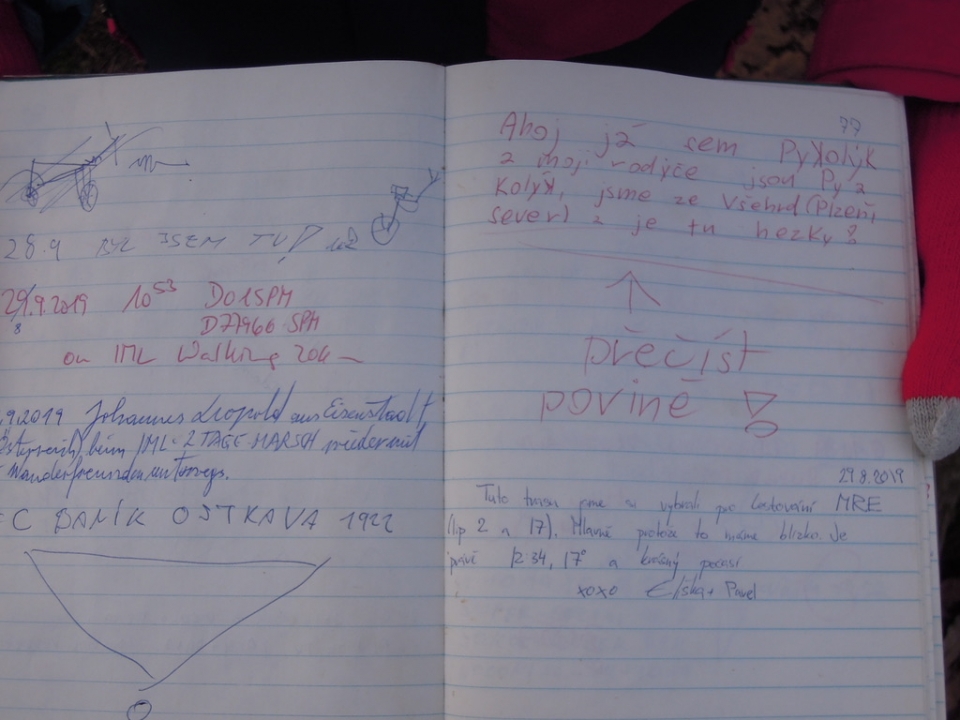 28.9 BYL JSEM TU!
29.9.2019 10 53 DO1SPM
8 D77966 SPM
on IML Walking
.9.2019 Johannes Leopold aus Eisenstadt,
Österreich) beim IML-2 TAGE MARSCH wieder mit
Wanderfreunden unterwegs.
C BANÍK OSTRAVA 1922
77
Ahoj já sem Pykolýk
a moji rodýče jsou Py a
Kolýk, jsme ze Všehrd (Plzeň
sever) a je tu hezky!
přečíst
povině !
29.8.2019
Tuto trasu jsme si vybrali pro testování MRE
(tip 2 a 17). Hlavně protože to máme blízko. Je
právě 12:34, 17° a krásný počasí
xoxo Eliška + Pavel